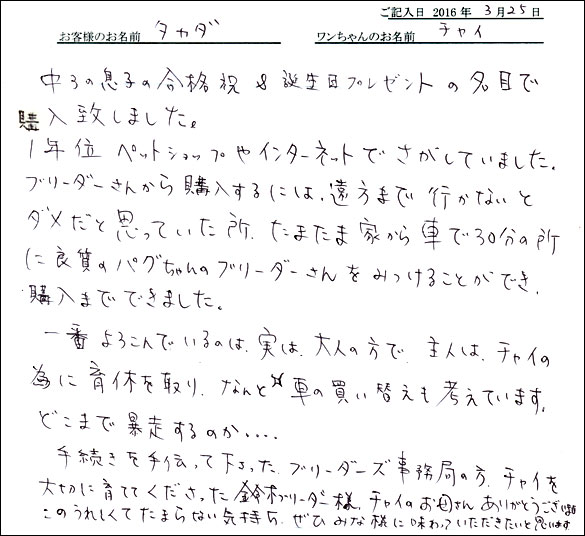 ご記入日 2016年 3月25日
お客様のお名前 タカダ ワンちゃんのお名前 チャイ
中3の息子の合格祝 & 誕生日プレゼントの名目で
購入致しました。
1年位 ペットショップやインターネットでさがしていました。
ブリーダーさんから購入するには、遠方まで行かないと
ダメだと思っていた所、たまたま家から車で30分の所
に良質のパグちゃんのブリーダーさんをみつけることができ、
購入までできました。
一番よろこんでいるのは、実は、大人の方で、主人は、チャイの
為に育休を取り、なんと☆車の買い替えも考えています。
どこまで暴走するのか‥‥
手続きを手伝って下さった、ブリーダーズ事務局の方、チャイを
大切に育ててくださった鈴木ブリーダー様、チャイのお母さんありがとうございます
このうれしくてたまらない気持ち、ぜひみな様に味わっていただきたいと思います